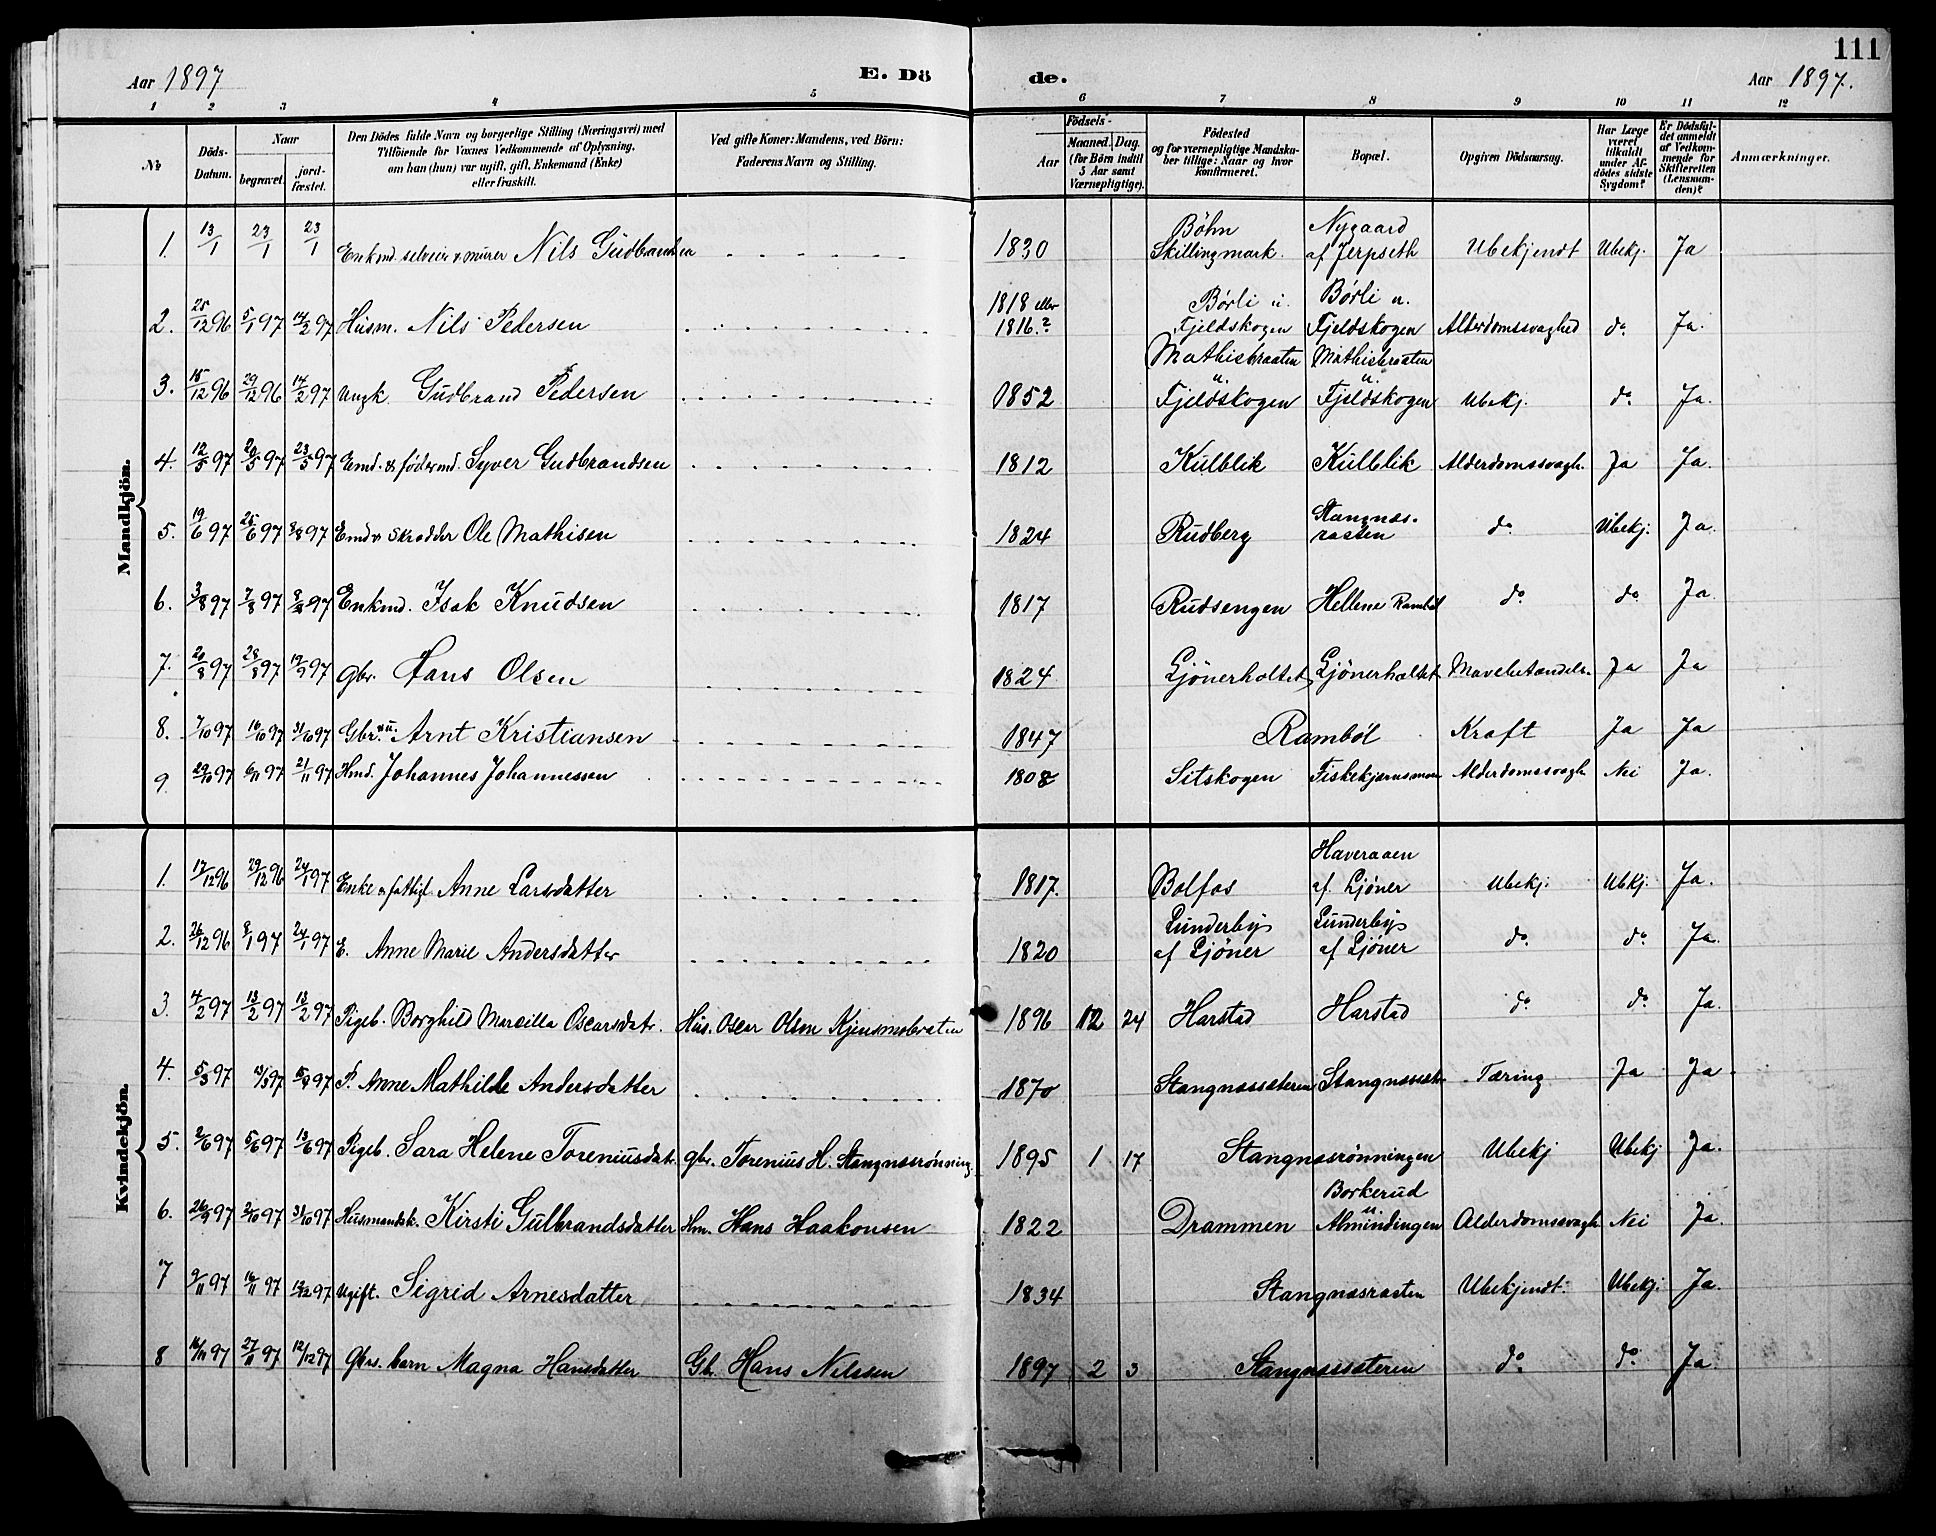 111
Aar 1897 E. Dö de. Aar 1897.
1 2 3 4 5 6 7 8 9 10 11 12
№
Döds-Datum.
Naar
begravet.
jord-fæstet.
Den Dödes fulde Navn og borgerlige Stilling (Næringsvei) med
Tilföiende for Voxnes Vedkommende af Oplysning,
om han (hun) var ugift, gift, Enkemand (Enke)
eller fraskilt.
Ved gifte Koner: Mandens, ved Börn:
Faderens Navn og Stilling.
Födsels-
Aar
Maaned. Dag.
(for Börn indtil
5 Aar samt
Værnepligtige).
Födested
og for værnepligtige Mandska-
ber tillige: Naar og hvor
konfirmeret.
Bopæl.
Opgiven Dödsaarsag.
Har Læge
været
tilkaldt
under Af-
dödes sidste
Sygdom?
Er Dödsfal-
det anmeldt
af Vedkom-
mende for
Skifteretten
(Lensman-
den)?
Anmærkninger.
Mandkjön.
1. 13/1 23/1 23/1 Enkmd. selveier & murer Nils Gudbrandsen 1830 Böhn Skillingmark. Nygaard af Jerpseth Ubekjendt Ubekj. Ja
2. 25/12 96 5/1 97 14/2 97 Husm. Nils Pedersen 1818 eller 1816.? Börli u. Fjeldskogen Börli u. Fjeldskogen Alderdomssvaghed do Ja.
3. 15/12 96 29/12 96 14/2 97 Ungk. Gudbrand Pedersen 1852 Mathisbraaten u. Fjeldskogen Mathisbraaten u. Fjeldskogen Ubekj. do Ja.
4. 12/5 97 20/5 97 23/5 97 Emd. & födermd. Syver Gudbrandsen 1812 Kulblik Kulblik Alderdomssvagh. Ja Ja.
5. 19/6 97 25/6 97 8/8 97 Emd & Skrædder Ole Mathisen 1824 Rudberg Stangnæs-rasten do Ubekj. Ja.
6. 3/8 97 7/8 97 8/8 97 Enkmd. Isak Knudsen 1817 Rudsengen Hellene Ramböl do do Ja.
7. 20/8 97 28/8 97 19/9 97 Gbr. Hans Olsen 1824 Ljönerholtet Ljönerholtet Mavebetændels. Ja Ja
8. 7/10 97 16/10 97 31/10 97 Gbr. Arnt Kristiansen 1847 Ramböl Kræft Ja Ja
9. 29/10 97 6/11 97 21/11 97 Hmd. Johannes Johannessen 1808 Sitskogen Fiskekjernsmoen Alderdomssvagh. Nei Ja.
Kvindekjön.
1. 17/12 96 29/12 96 24/1 97 Enke & fattigl Anne Larsdatter 1817. Bolfos Haveraaen af. Ljöner Ubekj. Ubekj. Ja.
2. 26/12 96 8/1 97 24/1 97 E. Anne Marie Andersdatter 1820 Lunderby af Ljöner Lunderby af Ljöner do do Ja.
3. 4/2 97 13/2 97 13/2 97 Pigeb. Borghild Marcilla Oscarsdatr. Hus. Oscar Olsen Kjensmobraten 1896 12 24 Harstad Harstad do do Ja.
4. 5/3 97 13/3 97 97 P. Anne Mathilde Andersdatter 1870 Stangnæssæteren Stangnæssæt. Tæring Ja Ja
5. 2/6 97 5/6 97 13/6 97 Pigeb. Sara Helene Toreniusdatr. Gbr. Torenius H. Stangnæsrönning. 1895 1 17 Stangnæsrönningen Ubekj Ubekj Ja.
6. 26/9 97 2/10 97 31/10 97 Husmandsk. Kirsti Gulbrandsdatter Hm. Hans Haakonsen 1822 Drammen Borkerud u Almindingen Alderdomssvagh. Nei Ja.
7 9/11 97 16/11 97 12/12 97 Ugift. Sigrid Arnesdatter 1834 Stangnæsrasten Ubekjendt. Ubekj. Ja.
8 16/11 97 27/11 97 12/12 97 Gbrs. barn Magna Hansdatter Gb. Hans Nilssen 1897 2 3 Stangnæssæteren do do Ja